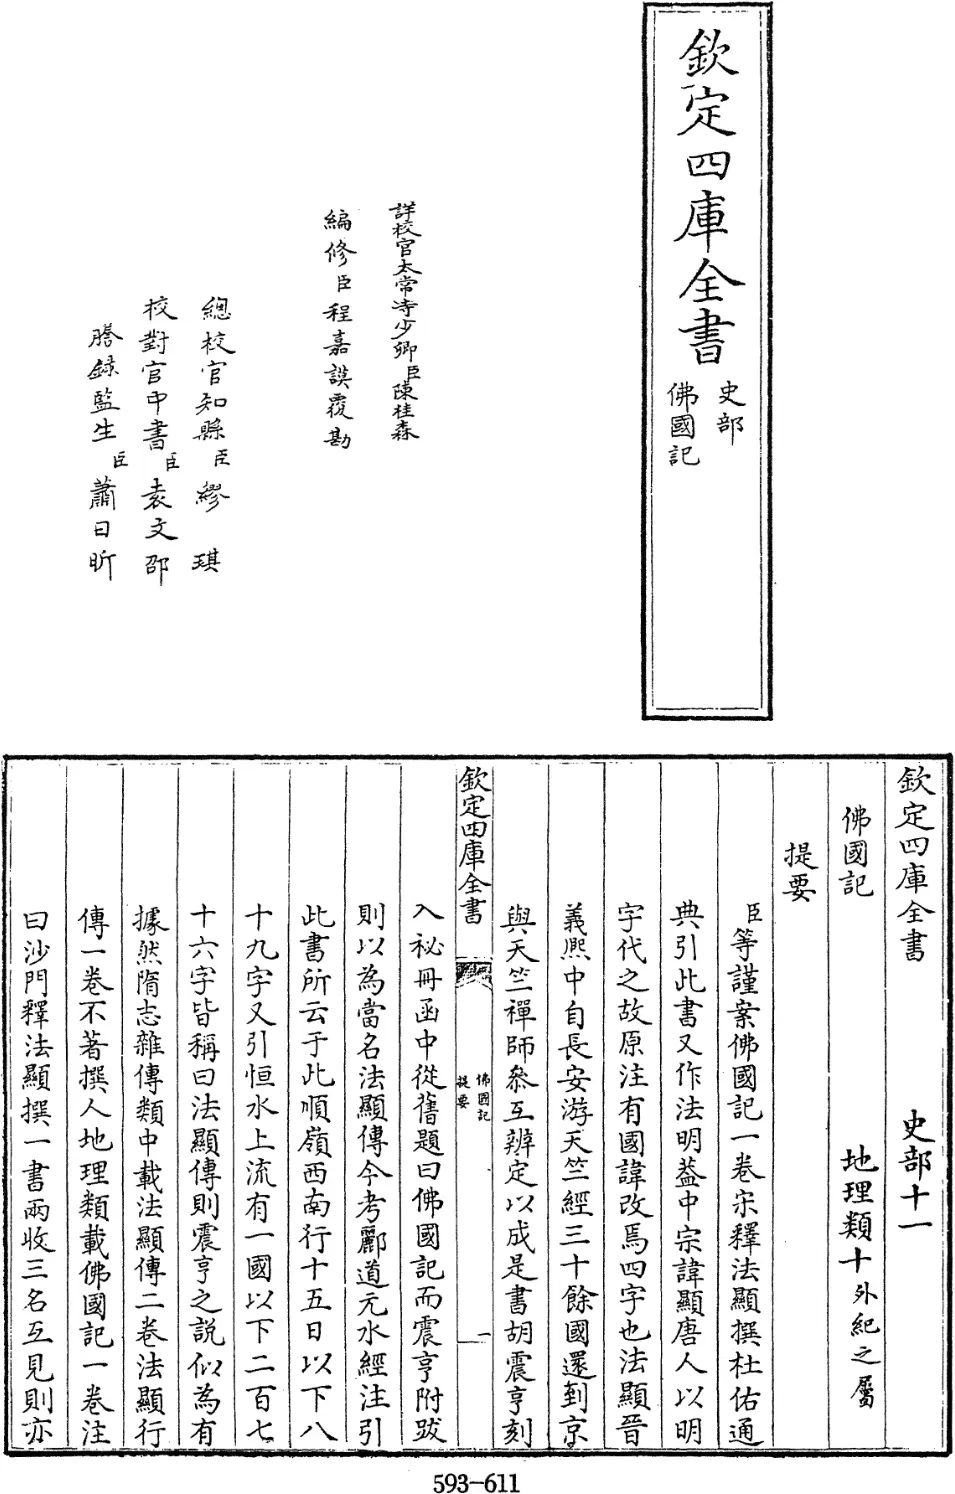 欽定四庫全書
史部
佛國記
詳校官太常寺少卿臣陳桂森
編修臣程嘉謨覆勘
總校官知縣臣繆琪
校對官中書臣袁文邵
謄録監生臣蕭日昕
欽定四庫全書 史部十一
佛國記 地理類十外紀之屬
提要
臣等謹案佛國記一卷宋釋法顯撰杜佑通
典引此書又作法明葢中宗諱顯唐人以明
字代之故原注有國諱改焉四字也法顯晉
義熙中自長安游天竺經三十餘國還到京
與天竺禪師叅互辨定以成是書胡震亨刻
欽定四庫全書
佛國記
提要
一
入祕冊函中從舊題曰佛國記而震亨附跋
則以為當名法顯傳今考酈道元水經注引
此書所云于此順嶺西南行十五日以下八
十九字又引恒水上流有一國以下二百七
十六字皆稱曰法顯傳則震亨之説似為有
據然隋志雜傳類中載法顯傳二卷法顯行
傳一卷不著撰人地理類載佛國記一卷注
曰沙門釋法顯撰一書兩收三名互見則亦
593-611